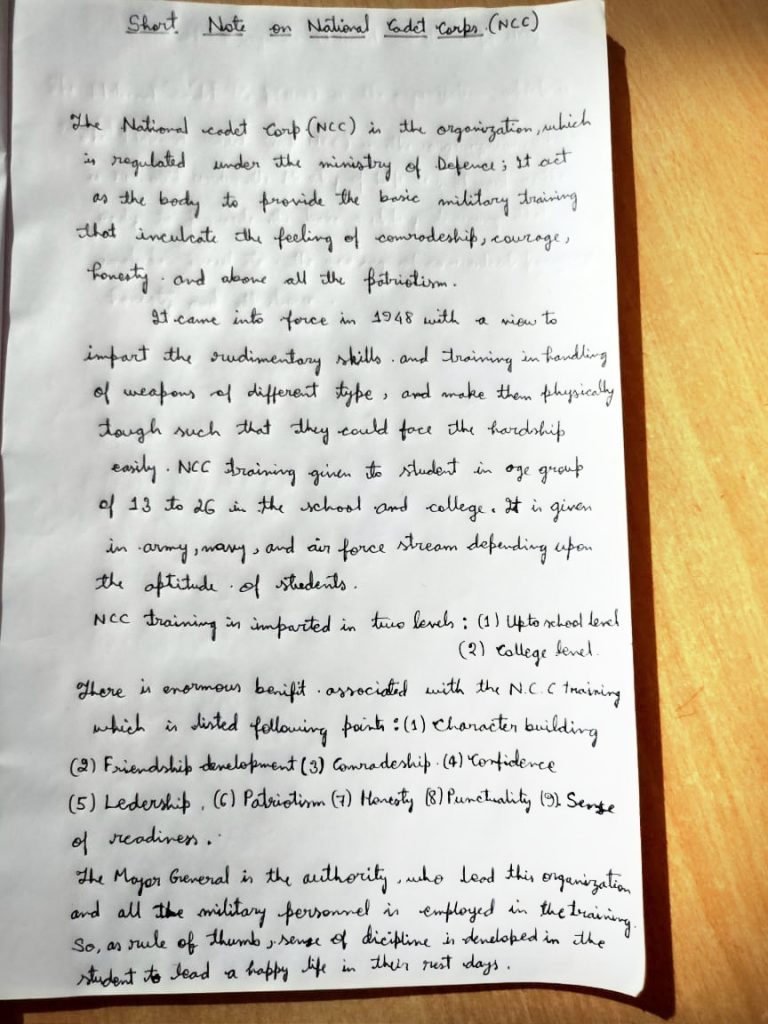 Short Note on National Cadet Corps. (NCC)
The National cadet Corp (NCC) is the organization, which
is regulated under the ministry of Defence; It act
as the body to provide the basic military training
that inculcate the feeling of comradeship, courage,
honesty. and above all the patriotism.
It came into force in 1948 with a view to
impart the rudimentary skills. and training in handling
of weapons of different type, and make them physically
tough such that they could face the hardship
easily. NCC training given to student in age group
of 13 to 26 in the school and college. It is given
in army, navy, and air force stream depending upon
the aptitude. of students.
NCC training is imparted in two levels: (1) Upto school level
(2) College level.
There is enormous benifit. associated with the N.C.C training
which is listed following points: (1) Character building
(2) Friendship development (3) Comradeship. (4) Confidence
(5) Ledership, (6) Patriotism (7) Honesty (8) Punctuality (9). Sense
of readiness.
The Major General is the authority, who lead this organization
and all the military personnel is employed in the training.
So, as rule of thumb, sense of dicipline is developed in the
student to lead a happy life in their rest days.